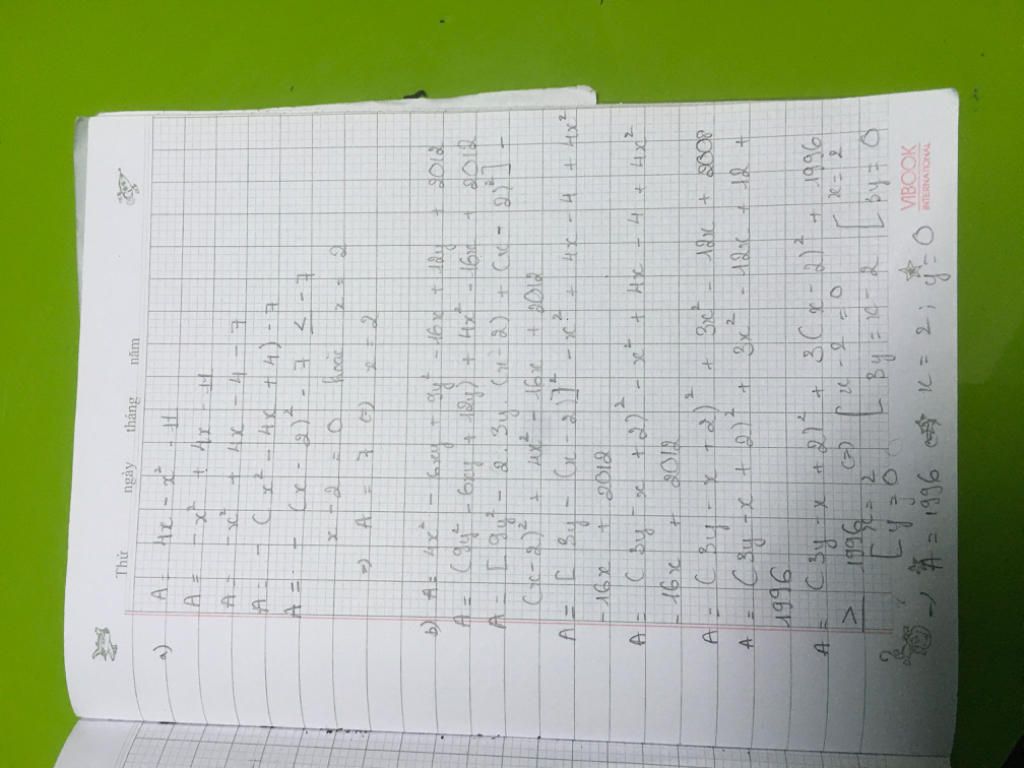 Thứ ngày tháng năm
a) A = 4x - x² - 11
A = - x² + 4x - 11
A = - x² + 4x - 4 - 7
A = - (x² - 4x + 4) - 7
A = - (x - 2)² - 7 ≤ - 7
x - 2 = 0 hoặc x = 2
=> A = 7 (=) x = 2
b) A = 4x² - 6xy + 9y² - 16x + 12y + 2012
A = (9y² - 6xy + 12y) + 4x² - 16x + 2012
A = [9y² - 2.3y.(x - 2) + (x - 2)²] -
(x - 2)² + 4x² - 16x + 2012
A = [3y - (x - 2)]² - x² + 4x - 4 + 4x²
- 16x + 2012
A = (3y - x + 2)² - x² + 4x - 4 + 4x²
- 16x + 2012
A = (3y - x + 2)² + 3x² - 12x + 2008
A = (3y - x + 2)² + 3x² - 12x + 12 +
1996
A = (3y - x + 2)² + 3(x - 2)² + 1996
≥ 1996 (=) [ x - 2 = 0 [ x = 2
[ 3y = x - 2 [ 3y = 0
[ x = 2
[ y = 0
A = 1996 x = 2 ; y = 0
VIBOOK
INTERNATIONAL